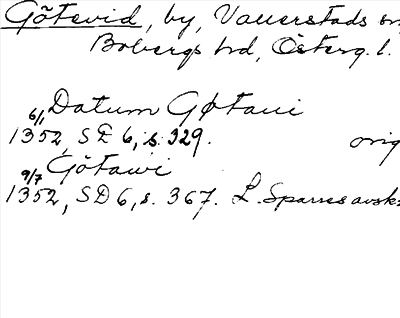 Götevid, by, Vallerstads sn,
Bobergs hd, Österg. l.
Datum Gøtaui
6/1 1352, SD 6, s. 329. orig
Götawi
9/7 1352, SD 6, s. 367. L. Sparres avskr